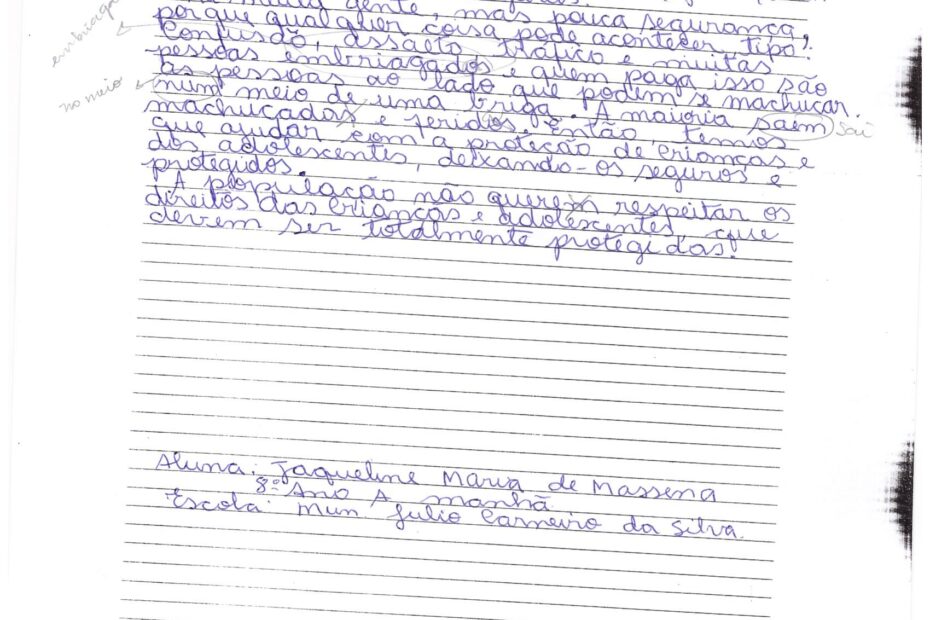 muita gente, mas pouca segurança,
porque qualquer coisa pode acontecer, tipo:
Confusão, assalto, tráfico e muitas
pessoas embriagados e quem paga isso são
as pessoas ao lado que podem se machucar
num meio de uma briga. A maioria saem sai
machucadas e feridos. Então, temos
que ajudar com a proteção de crianças e
dos adolescentes, deixando-os seguros e
protegidos.
A população não querem respeitar os
direitos das crianças e adolescentes, que
devem ser totalmente protegidas!
no meio
Aluna: Jaqueline Maria de Massena
8º Ano A manhã
Escola: Mun Julio Carneiro da Silva.